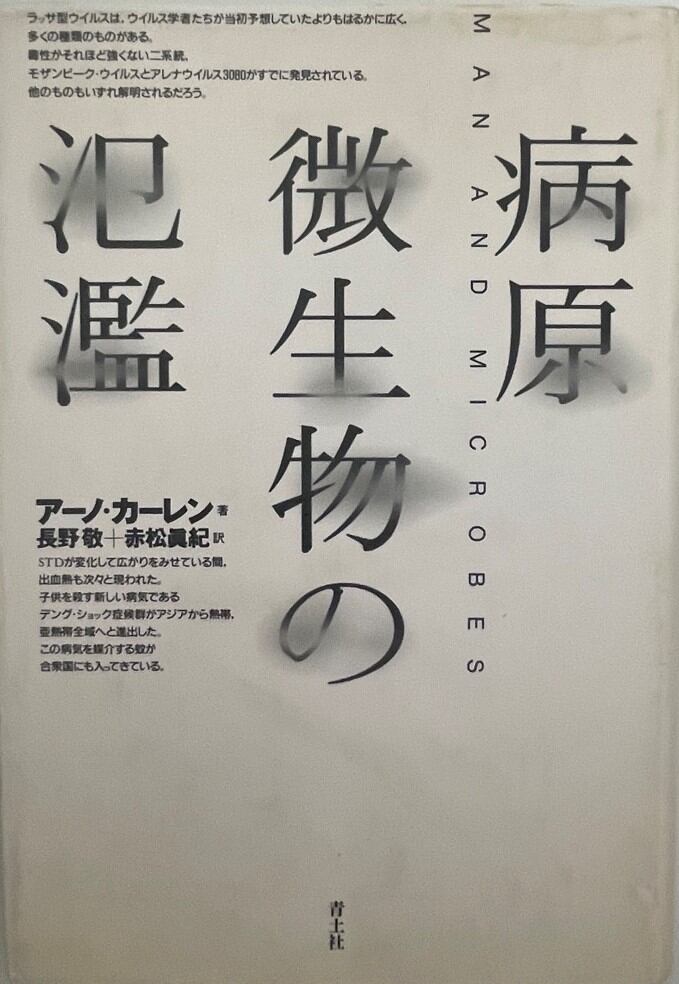 ラッサ型ウイルスは，ウイルス学者たちが当初予想していたよりもはるかに広く，
多くの種類のものがある。
毒性がそれほど強くない二系統，
モザンビーク・ウイルスとアレナウイルス3080がすでに発見されている。
他のものもいずれ解明されるだろう。
病原
MAN AND MICROBES
微生物の
氾濫
アーノ・カーレン 著
長野敬＋赤松眞紀 訳
STDが変化して広がりをみせている間，
出血熱も次々と現われた。
子供を殺す新しい病気である
デング・ショック症候群がアジアから熱帯，
亜熱帯全域へと進出した。
この病気を媒介する蚊が
合衆国にも入ってきている。
青土社